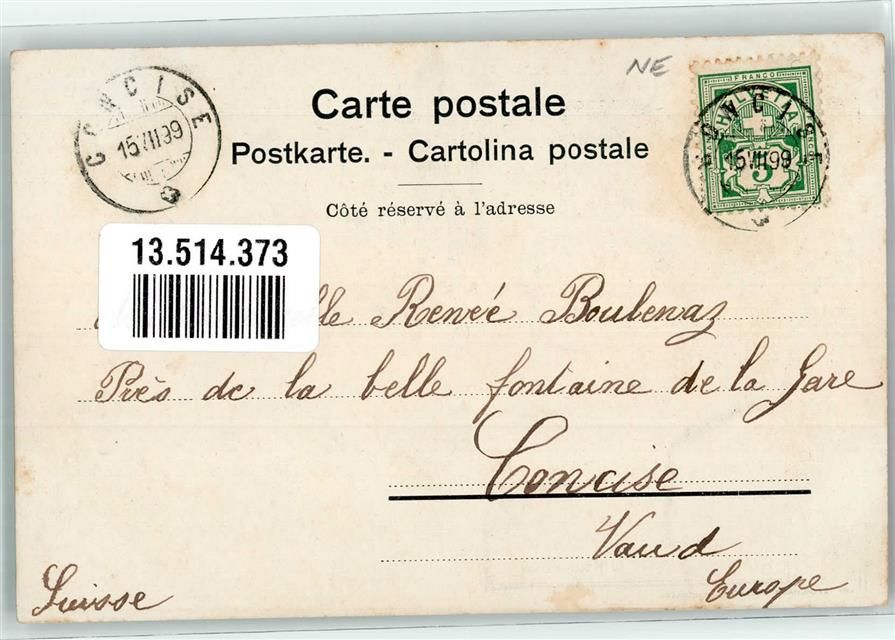 NE
CONCISE
15 VII 99
FRANCO
HELVETIA
5
CONCISE
15 VII 99
Carte postale
Postkarte. - Cartolina postale
Côté réservé à l'adresse
13.514.373
elle Renée Boulenaz
Près de la belle fontaine de la Gare
Concise
Vaud
Suisse
Europe